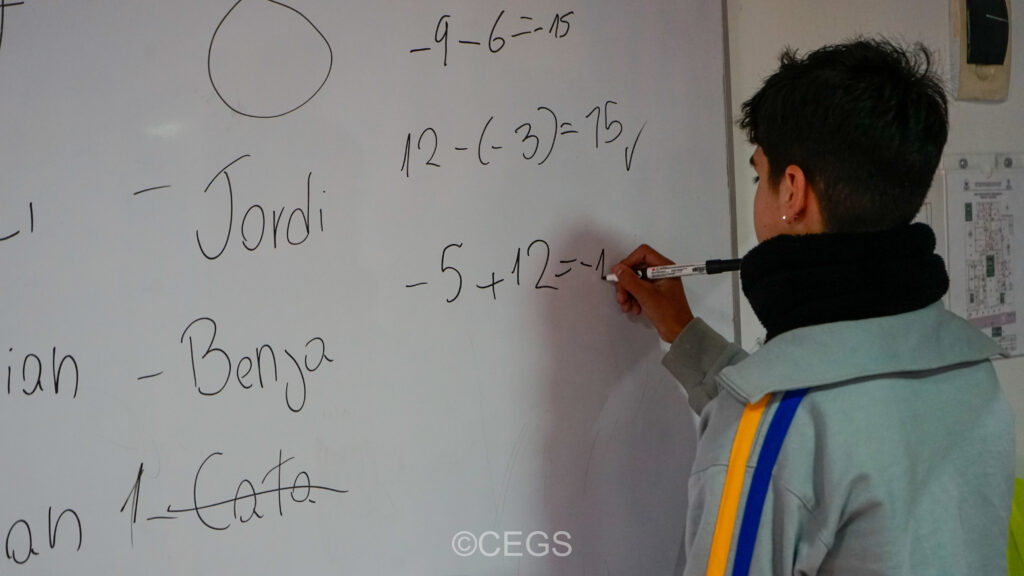 -9-6=-15
12-(-3)=15✓
- Jordi
-5+12=-1
ian - Benja
an 1- Cata
©CEGS